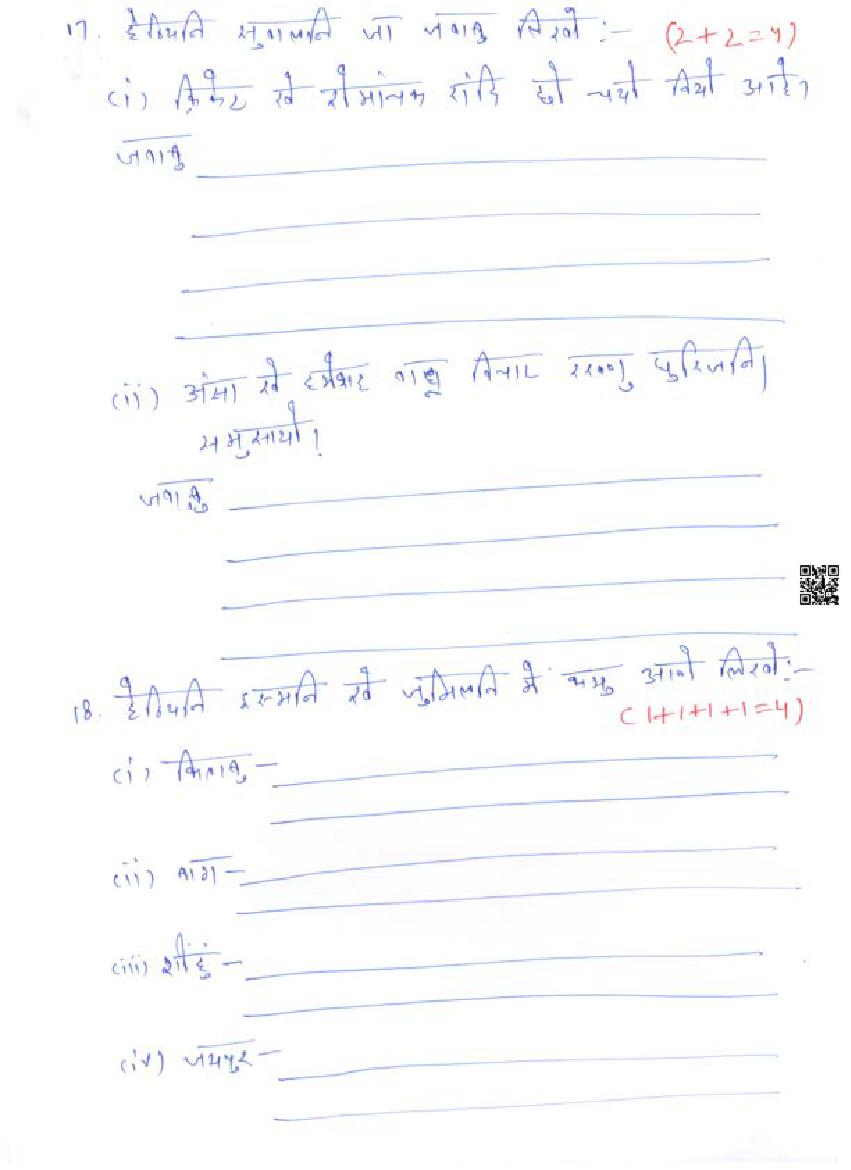 17. हेठियनि सुवालनि जा जवाब लिखो :- (2+2=4)
(i) क्रिकेट खे रोमांचक रांदि छो चयो वियो आहे?
जवाबु
(ii) अंसां खे हमेशह वाधू विचार रखणु घुरिजनि।
समुझायो।
जवाबु
18. हेठियनि इस्मनि खे जुमिलनि में कमु आणे लिखो:-
(1+1+1+1=4)
(i) किताबु -
(ii) बाग -
(iii) शींहुं -
(iv) जयपुर -